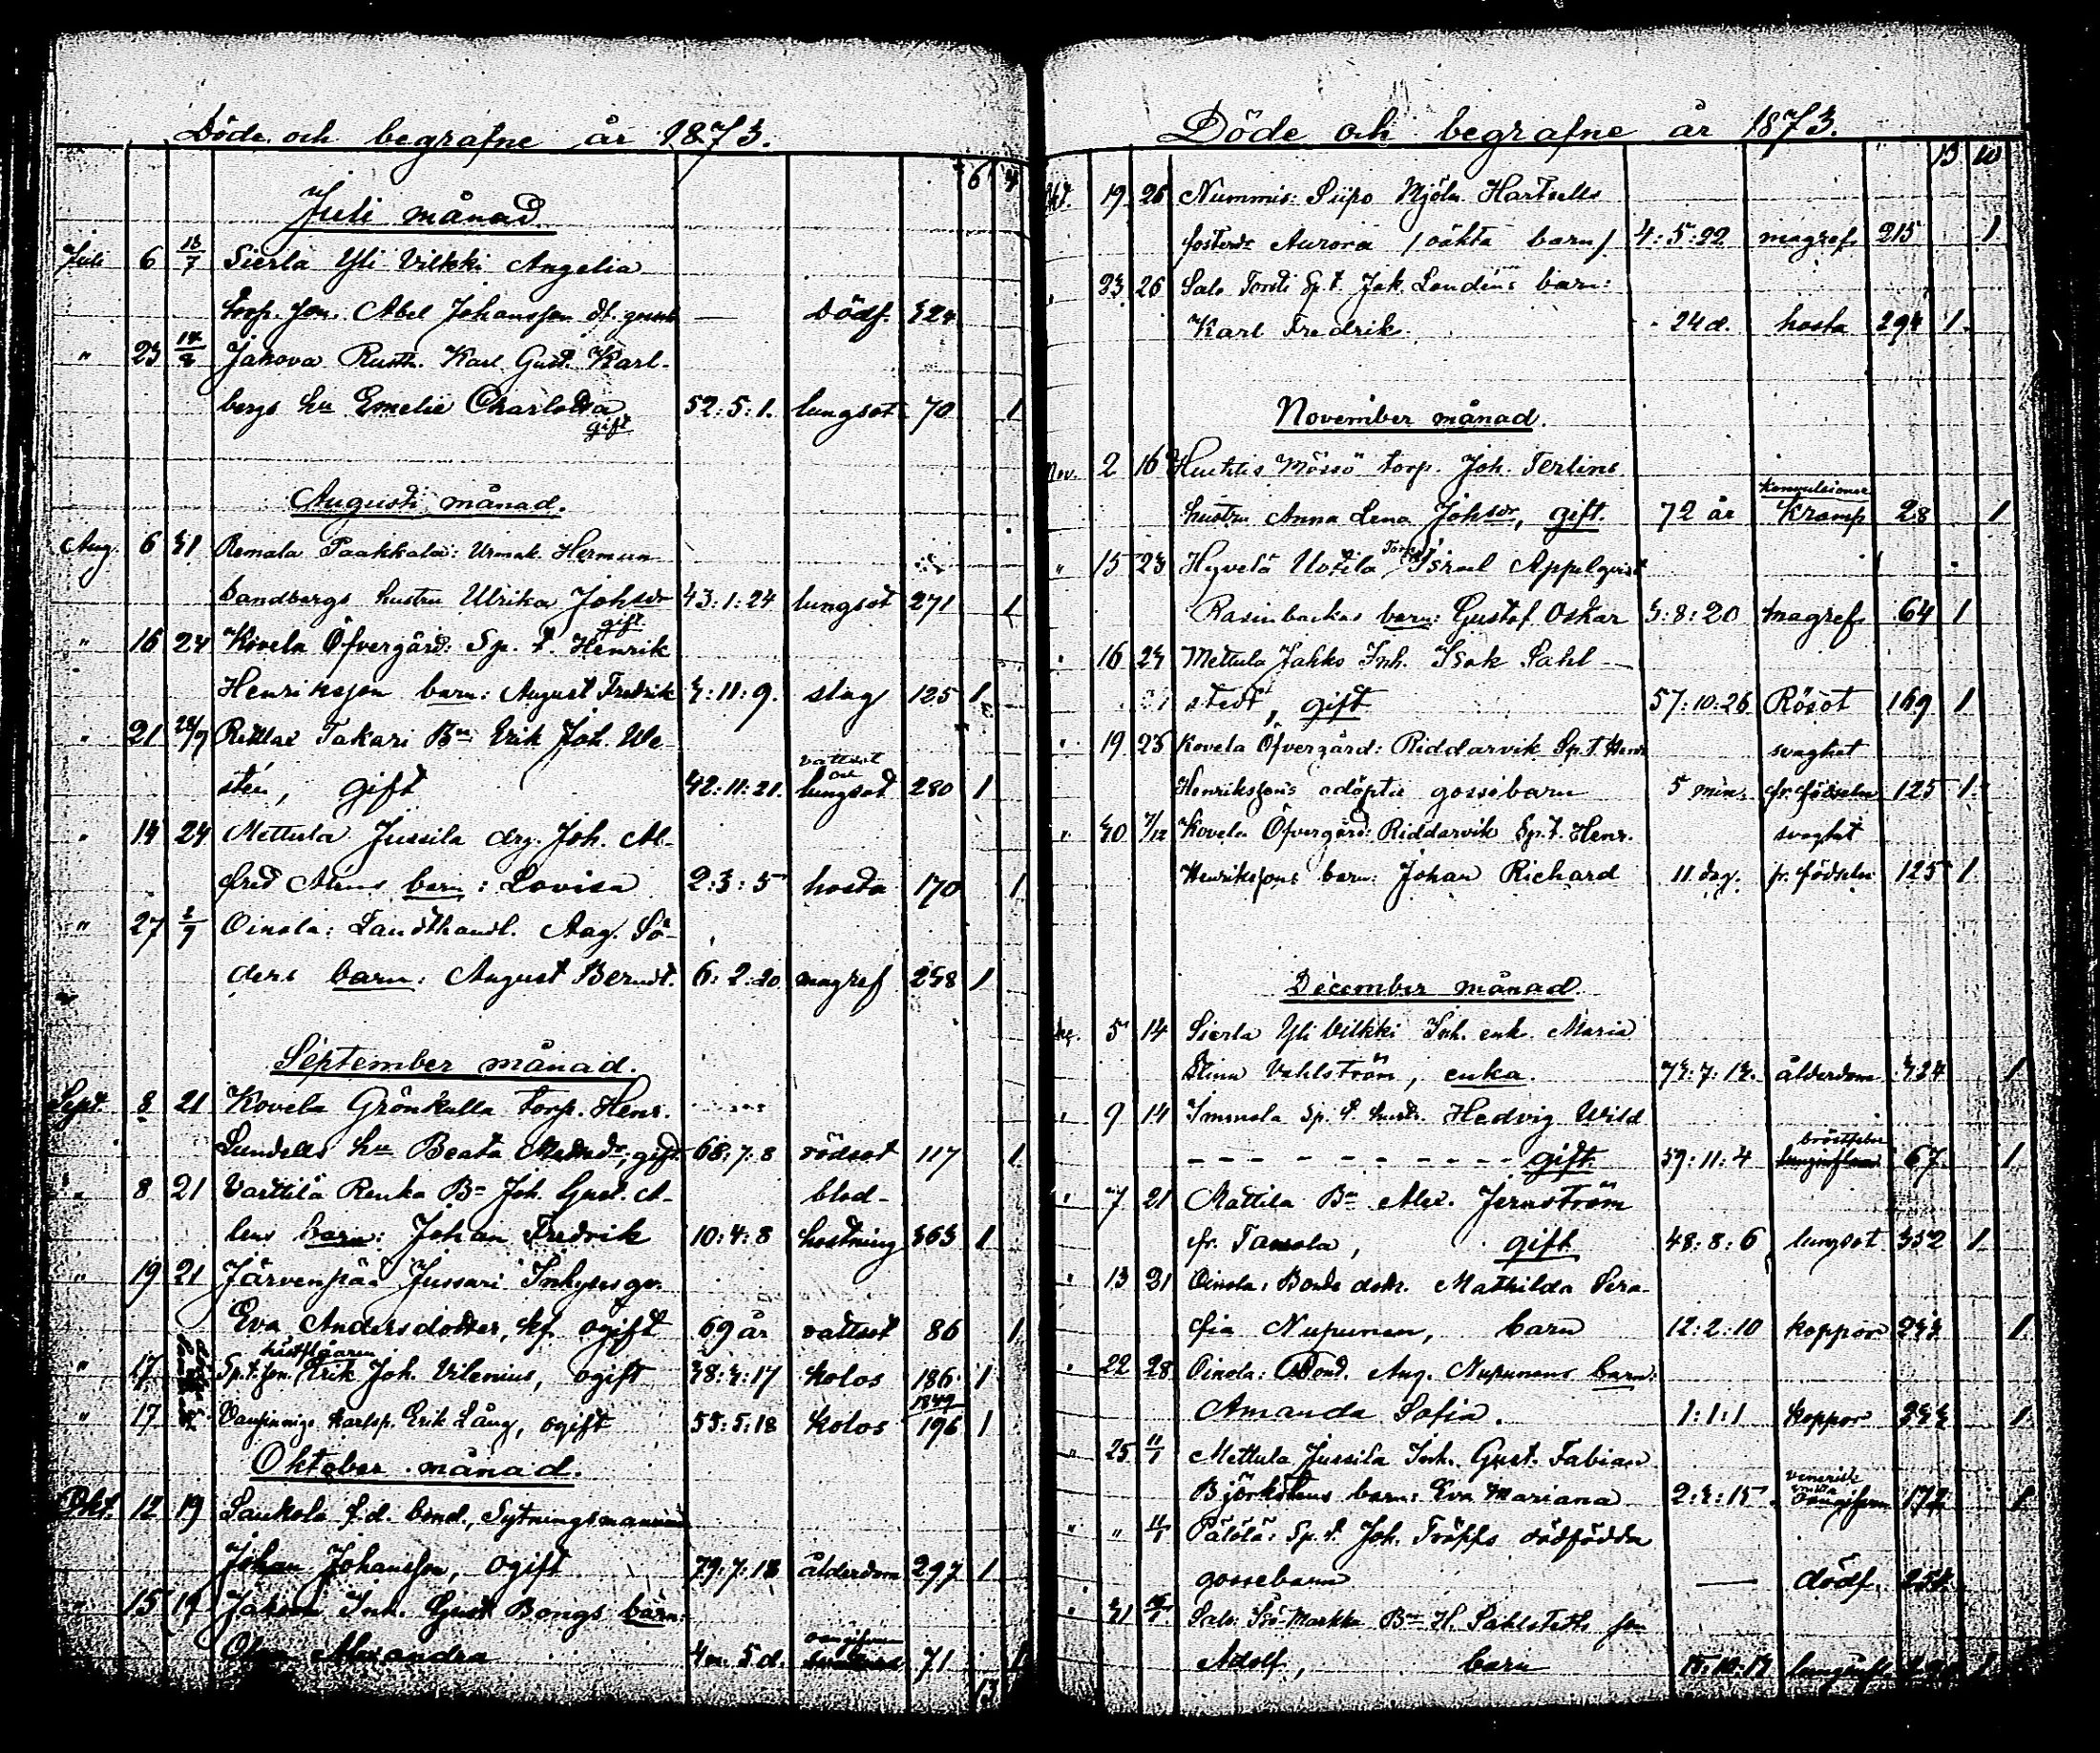 Döde och begrafne år 1873.
6 4
Juli månad
Juli 6 13/7 Sierla Yli Vilkki Angelia
torp. son. Abel Johansson df. — Dödf. 324
" 23 14/8 Jakova Rustn. Karl Gust. Karl-
bergs hu Emelie Charlotta 52:5:1. lungsot 70 1
gift
Augusti månad.
Aug. 6 31 Remala Paakkala: Urmak. Herman
Sandbergs hustru Ulrika Johsdr 43:1:24 lungsot 271 1
gift.
" 16 24 Kovela Öfvergård: Sp. t. Henrik
Henriksson barn: August Fredrik 3:11:9. slag 125 1
" 21 28/9 Takari Bn Erik Joh. We-
vattsot
och
stén, gift 42:11:21. lungsot 280 1
" 14 24 Mettula Jussila drg. Joh. Al-
fred barn: Lovisa 2:3:5 hosta 170 1
" 27 2/9 Oinola: Landthandl. Aug. Sö-
ders barn: August Berndt. 6:2:20 magref 238 1
September månad.
Sept. 8 21 Kovela Grönkulla torp. Henr.
Lundells hu Beata gift 68:7:8 rödsot 117 1
" 8 21 Varttila Renko Bn Joh. Gust. A-
blod-
lens barn: Johan Fredrik 10:4:8 hostning 363 1
" 19 21 Järvenpää Jussari Inhyses qv.
Eva Andersdotter, ogift 69 år vattsot 86 1
" 17 Sp.t.son. Erik Joh. Vilenius, ogift 38:3:17 kolos 186 1
1849
" 17 karlsp. Erik Lång, ogift 55:5:18 kolos 196 1
Oktober månad.
Okt. 12 19 Laukola f.d. bond., Sytningsmannen
Johan Johansson, ogift 79:7:18 ålderdom 297 1
" 15 19 Jakova Inh. Gust Bongs barn:
Olga Alexandra 4 m. 5 d. 71 1
13
Döde och begrafne år 1873.
13 10
Okt. 19 26 Nummis: Siipo Mjöln. Hartvells
fosterdr Aurora (oäkta barn) 4:5:22 magref. 215 1
" 23 26 Salo Torsti Sp. t. Joh. Lindéns barn:
Karl Fredrik. - 24 d. hosta 294 1
November månad.
Nov. 2 16 Huhtis Mössö torp. Joh. Terlins
konvulsioner
hustru Anna Lena Johsdr, gift. 72 år Kramp 28 1
" 15 23 Hyvelä Uotila Torp. Israel Appelqvist
Rasinbackas barn: Gustaf Oskar 3:8:20 magref. 64 1
" 16 23 Mettula Jakko Inh. Isak Sahl-
stedt, gift 57:10:26 Rösot 169 1
" 19 23 Kovela Öfvergård: Riddarvik Sp. T. Henr. svaghet
Henriksson's odöpte gossebarn 5 min. fr. födseln 125 1
" 30 7/12 Kovela Öfvergård: Riddarvik Sp.t. Henr. svaghet
Henrikssons barn: Johan Richard 11 dag. fr. födseln 125 1
December månad.
5 14 Sierla Yli Vilkki Inh. enk. Maria
Stina Vahlström, enka. 73:7:13. ålderdom 324 1
" 9 14 Immola Sp. t. hustr. Hedvig Wild
- - - - - - - - - - gift. 59:11:4 67 1
" 7 21 Mattila Bn Alex. Jernström
fr. Tavola, gift 48:8:6 lungsot 352 1
" 13 21 Oinola: Bonde dotr. Mathilda Sera-
fia Nupunen, barn 12:2:10 koppor 233 1
" 22 28 Oinola: Bond. Aug. Nupunens barn:
Amanda Sofia. 1:1:1 koppor 233 1
" 25 11/1 Mettula Jussila Inh. Gust. Fabian
venerisk
Björkstens barn: Eva Mariana 2:3:15 172 1
" " 11/1 Pälölä: Sp. t. Joh. Tröpps dödfödda
gossebarn — dödf. 254
" 31 Salo: Iso-Markka Bn H. Sahlstedts son
Adolf, barn 1